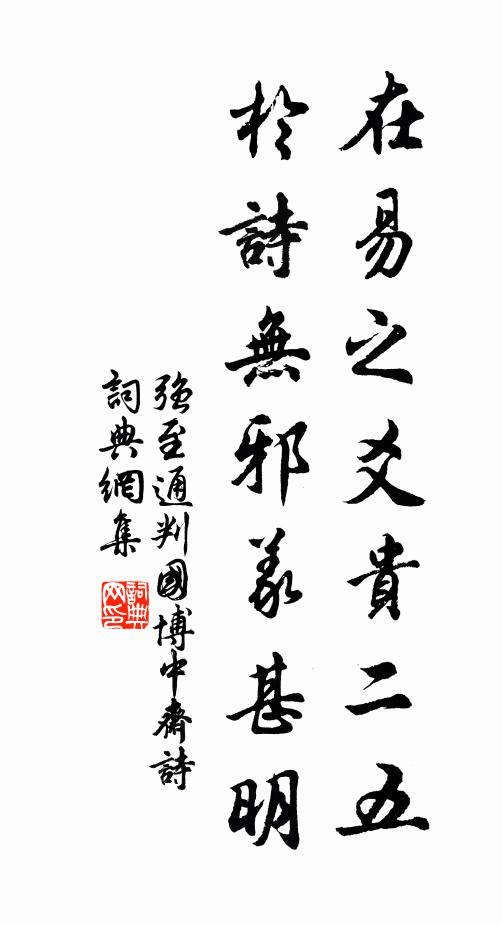 在易之爻貴二五
於詩無邪義甚明
強至通判國博中齋詩
詞典網集
詞典网印